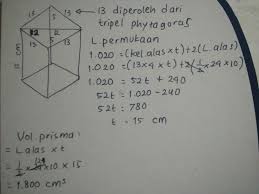 13 diperoleh dari
tripel phytagoras
13
5
13
12
12
13
5
13
15 cm
L. permukaan
1.020 = (kel.alas x t) + 2(L.alas)
1.020 = (13x4 x t) + 2(1/2 x 24 x 10)
1.020 = 52t + 240
52t = 1.020 - 240
52t = 780
t = 15 cm
Vol. prisma :
= L alas x t
= 1/2 x 24 x 10 x 15
= 1.800 cm³